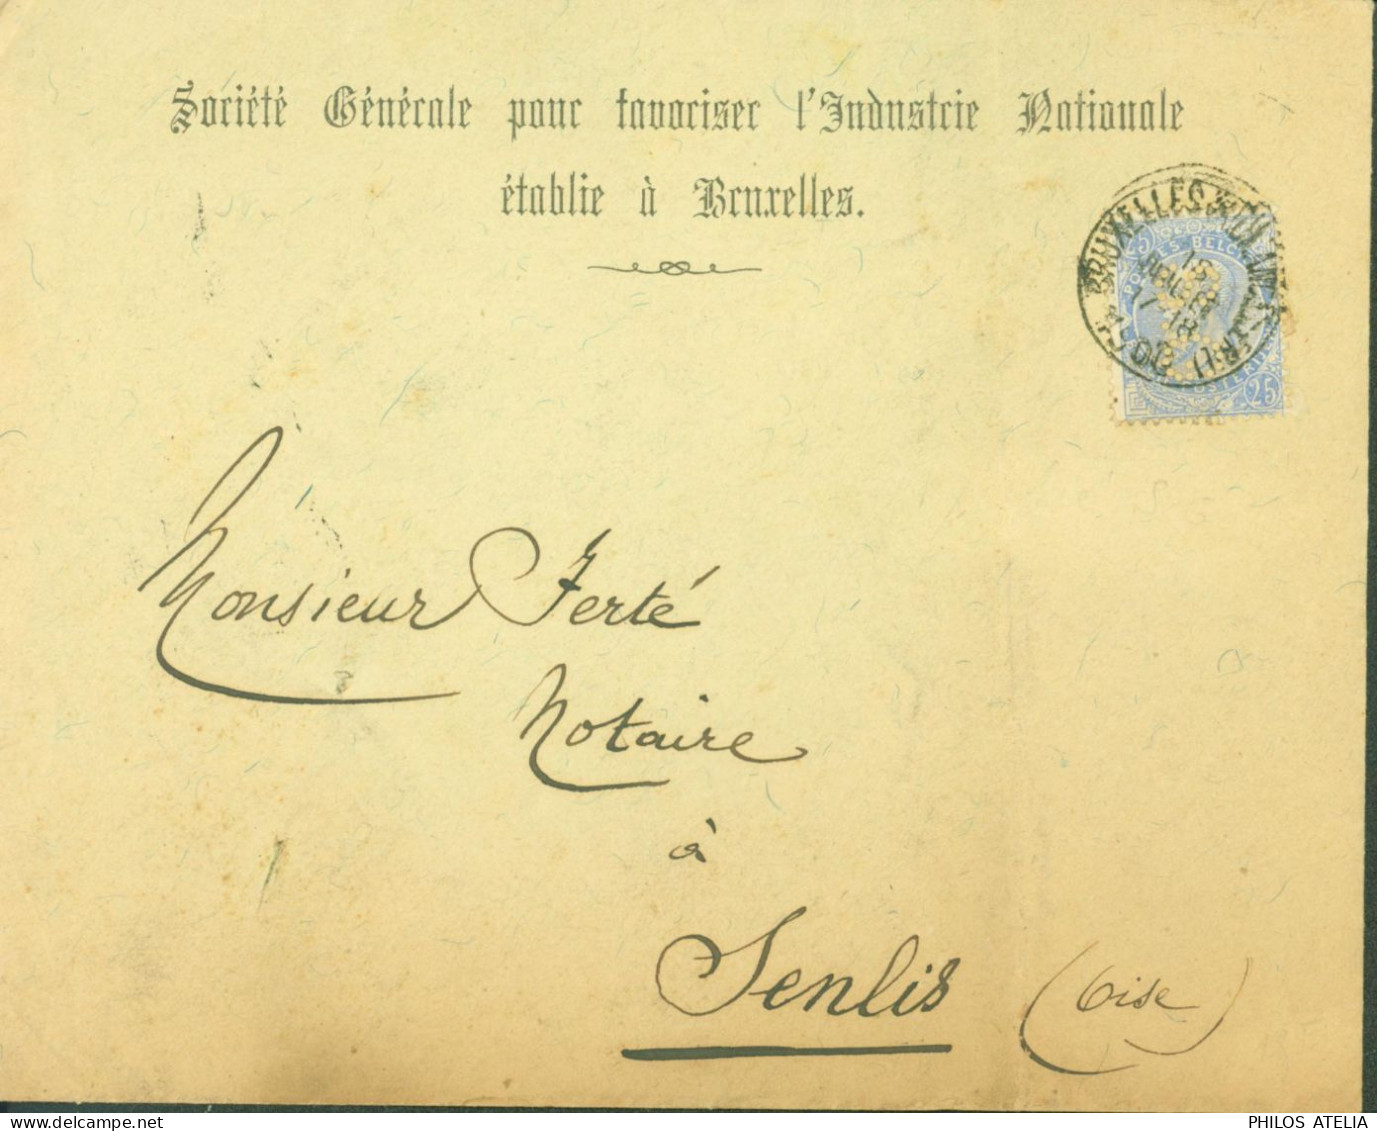 Société Générale pour favoriser l'Industrie Nationale
établie à Bruxelles.
BRUXELLES
25
17-18
25
Monsieur Ferté
Notaire
à
Senlis (Oise)
PHILOS ATELIA